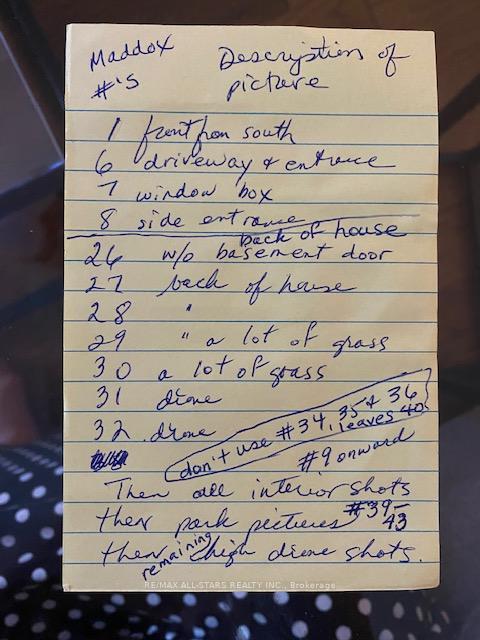 Maddox Description of
#'s picture
1 front from south
6 driveway & entrance
7 window box
8 side entrance
back of house
26 w/o basement door
27 back of house
28 "
29 " a lot of grass
30 a lot of grass
31 drone
32 drone
don't use #34, 35 & 36
leaves 40
#9 onward
Then all interior shots
then park pictures #39-
43
then remaining high drone shots.
RE/MAX ALL-STARS REALTY INC., Brokerage